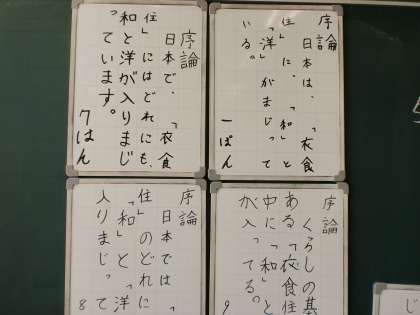 序論
日本は、「衣食
住」に、「和」と
「洋」がまじって
いる。
一ぱん
序論
日本で、「衣食
住」にはどれにも、
和と洋が入りまじ
っています。
7はん
序論
くらしの基
ある「衣食住
中に「和」と
が入ってる。
9
序論
日本では「
住」のどれに
「和」と「洋
入りまじって
8